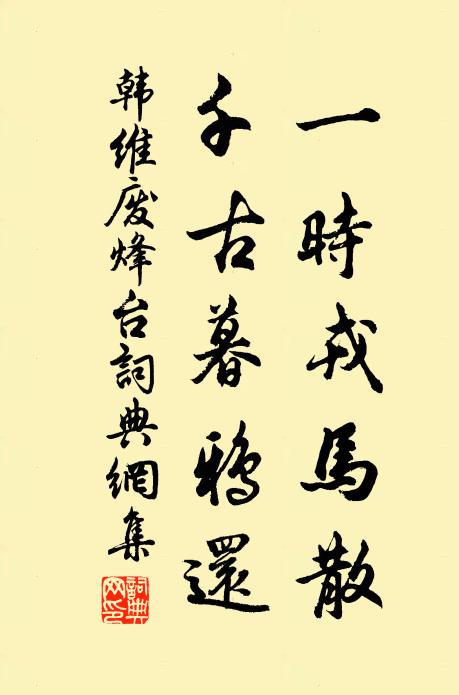 一時戎馬散
千古暮鴉還
韩維廢烽台詞典網集
詞典网印